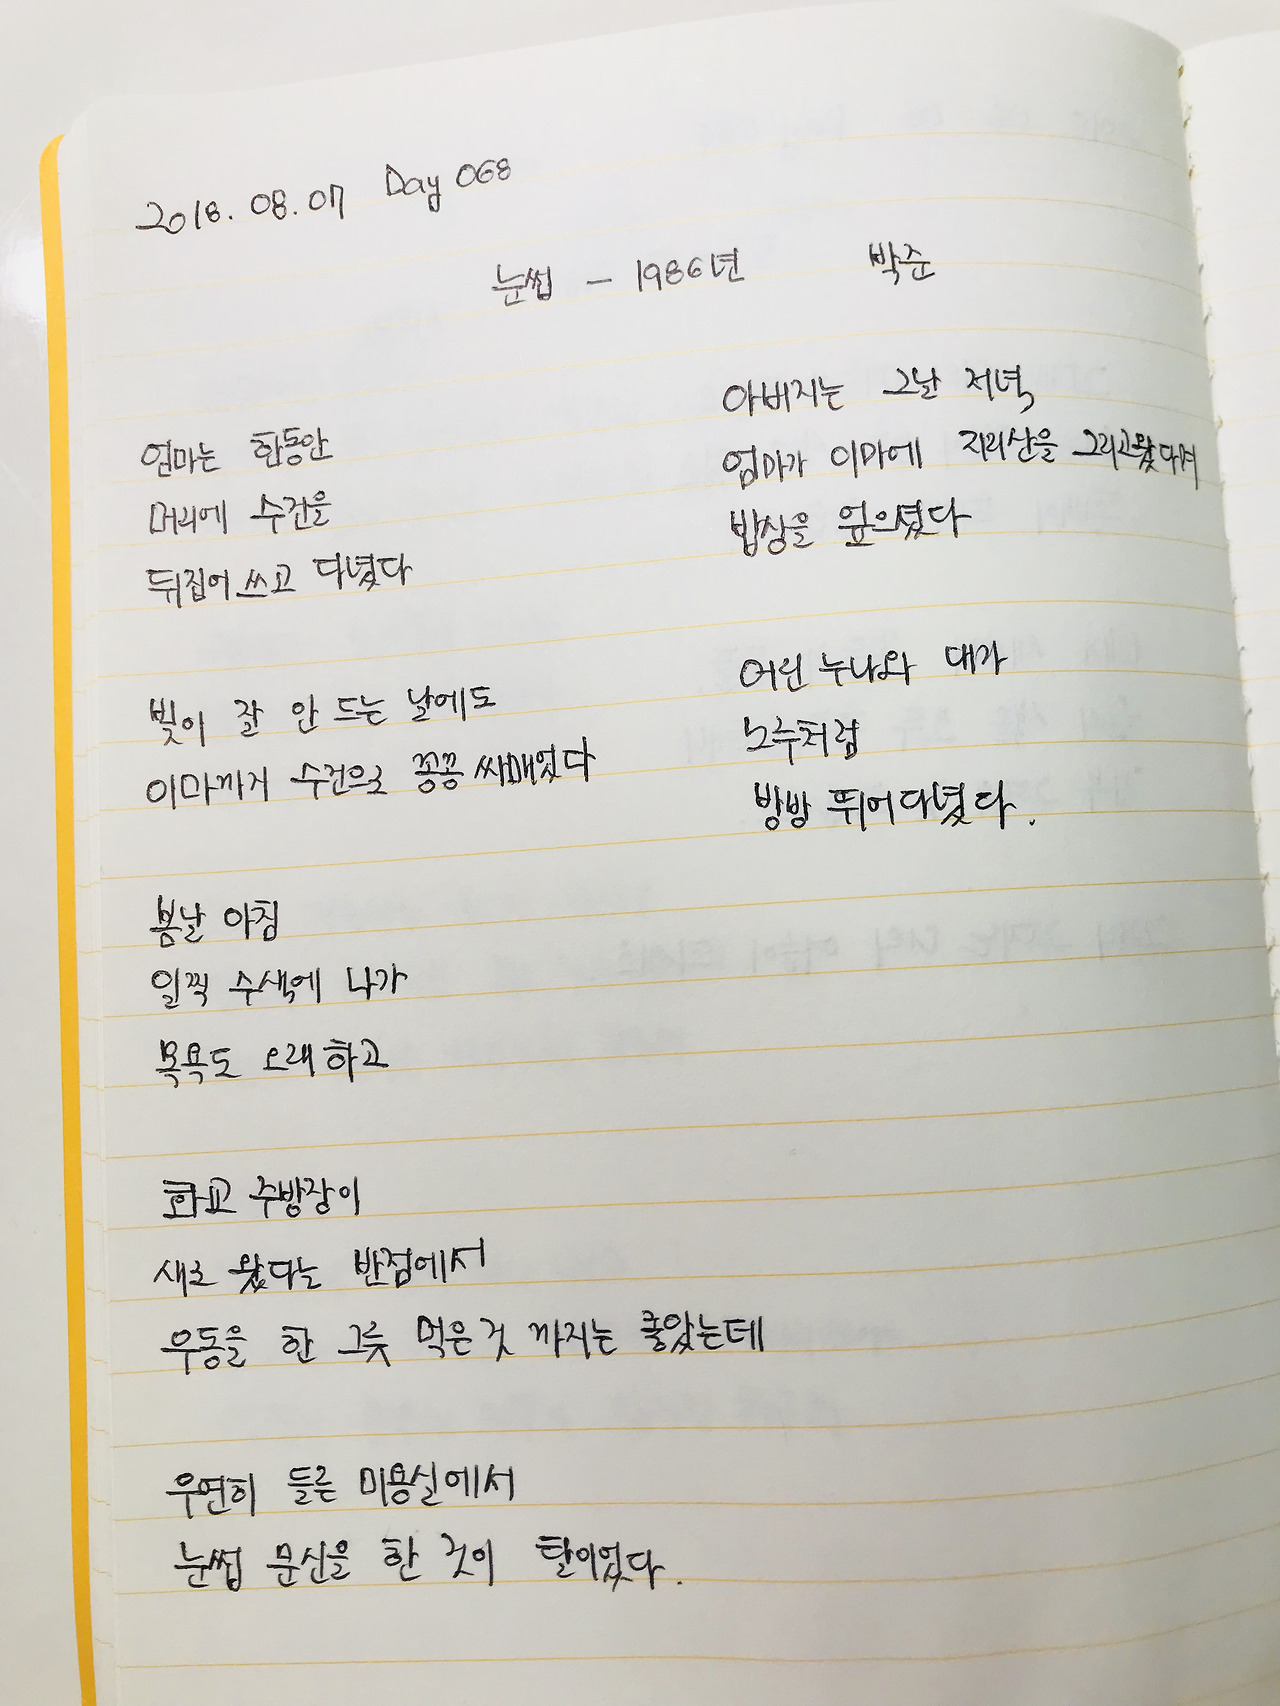 2018. 08. 07 Day 068
눈썹 - 1986년 박준
엄마는 한동안
머리에 수건을
뒤집어쓰고 다녔다
빛이 잘 안 드는 날에도
이마까지 수건으로 꽁꽁 싸매었다
봄날 아침
일찍 수색에 나가
목욕도 오래하고
화교 주방장이
새로 왔다는 반점에서
우동을 한 그릇 먹은것 까지는 좋았는데
우연히 들른 미용실에서
눈썹 문신을 한 것이 탈이었다.
아버지는 그날 저녁
엄마가 이마에 지리산을 그리고왔다며
밥상을 엎으셨다
어린 누나와 내가
노루처럼
방방 뛰어다녔다.